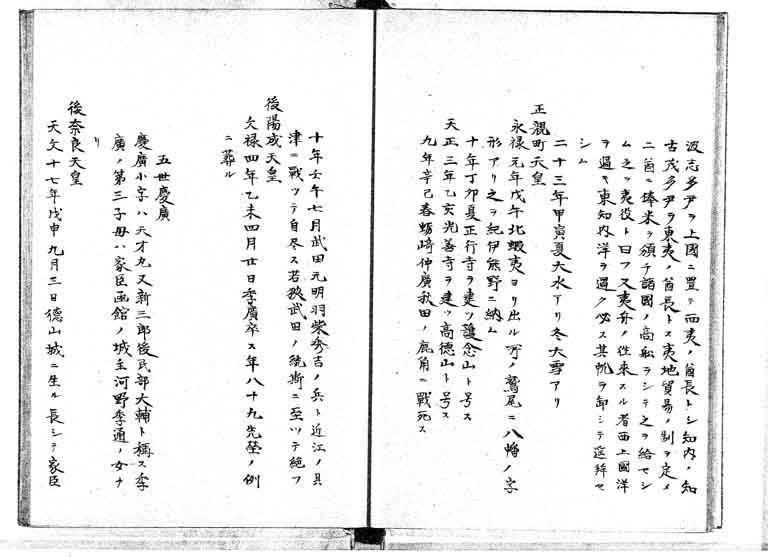 波志多尹ヲ上國ニ置テ西夷ノ酋長トシ知内ノ知
古茂多尹ヲ東夷ノ酋長トス夷地貿易ノ制ヲ定メ
二酋ニ俸米ヲ頒チ諸國ノ商船ヲシテ之ヲ給セシ
ム之ヲ夷役ト曰フ又夷舟ノ徃来スル者西上國洋
ヲ過キ東知内洋ヲ過ク必ス其帆ヲ卸シテ遥拜セ
シム
二十三年甲寅夏大水アリ冬大雪アリ
正親町天皇
永禄元年戊午北蝦夷ヨリ出ル所ノ鷲尾ニ八幡ノ字
形アリ之ヲ紀伊熊野ニ納ム
十年丁卯夏正行寺ヲ建ツ護念山ト号ス
天正三年乙亥光善寺ヲ建ツ高徳山ト号ス
九年辛己春蠣崎仲廣秋田ノ鹿角ニ戰死ス
十年壬午七月武田元明羽柴秀吉ノ兵ト近江ノ貝
津ニ戰ツテ自尽ス若狹武田ノ統斯ニ至ツテ絶フ
後陽成天皇
文禄四年乙未四月廿日季廣卒ス年八十九先塋ノ例
ニ葬ル
五世慶廣
慶廣小字ハ天才丸又新三郎後民部大輔ト稱ス季
廣ノ第三子母ハ家臣函館ノ城主河野季通ノ女ナ
リ
後奈良天皇
天文十七年戊申九月三日德山城ニ生ル長シテ家臣